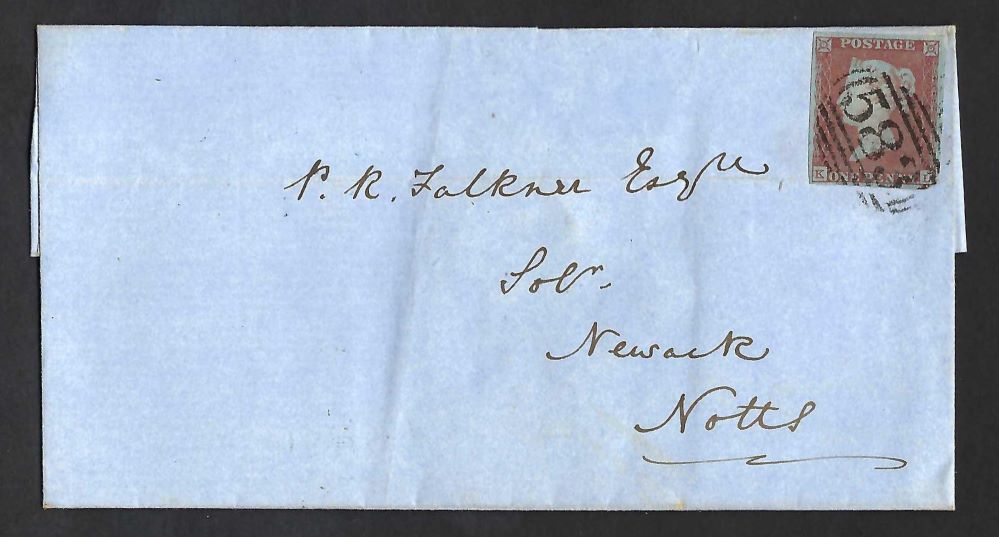 POSTAGE
583
K ONE PENNY
P. R. Falkner Esqre
Solr.
Newark
Notts